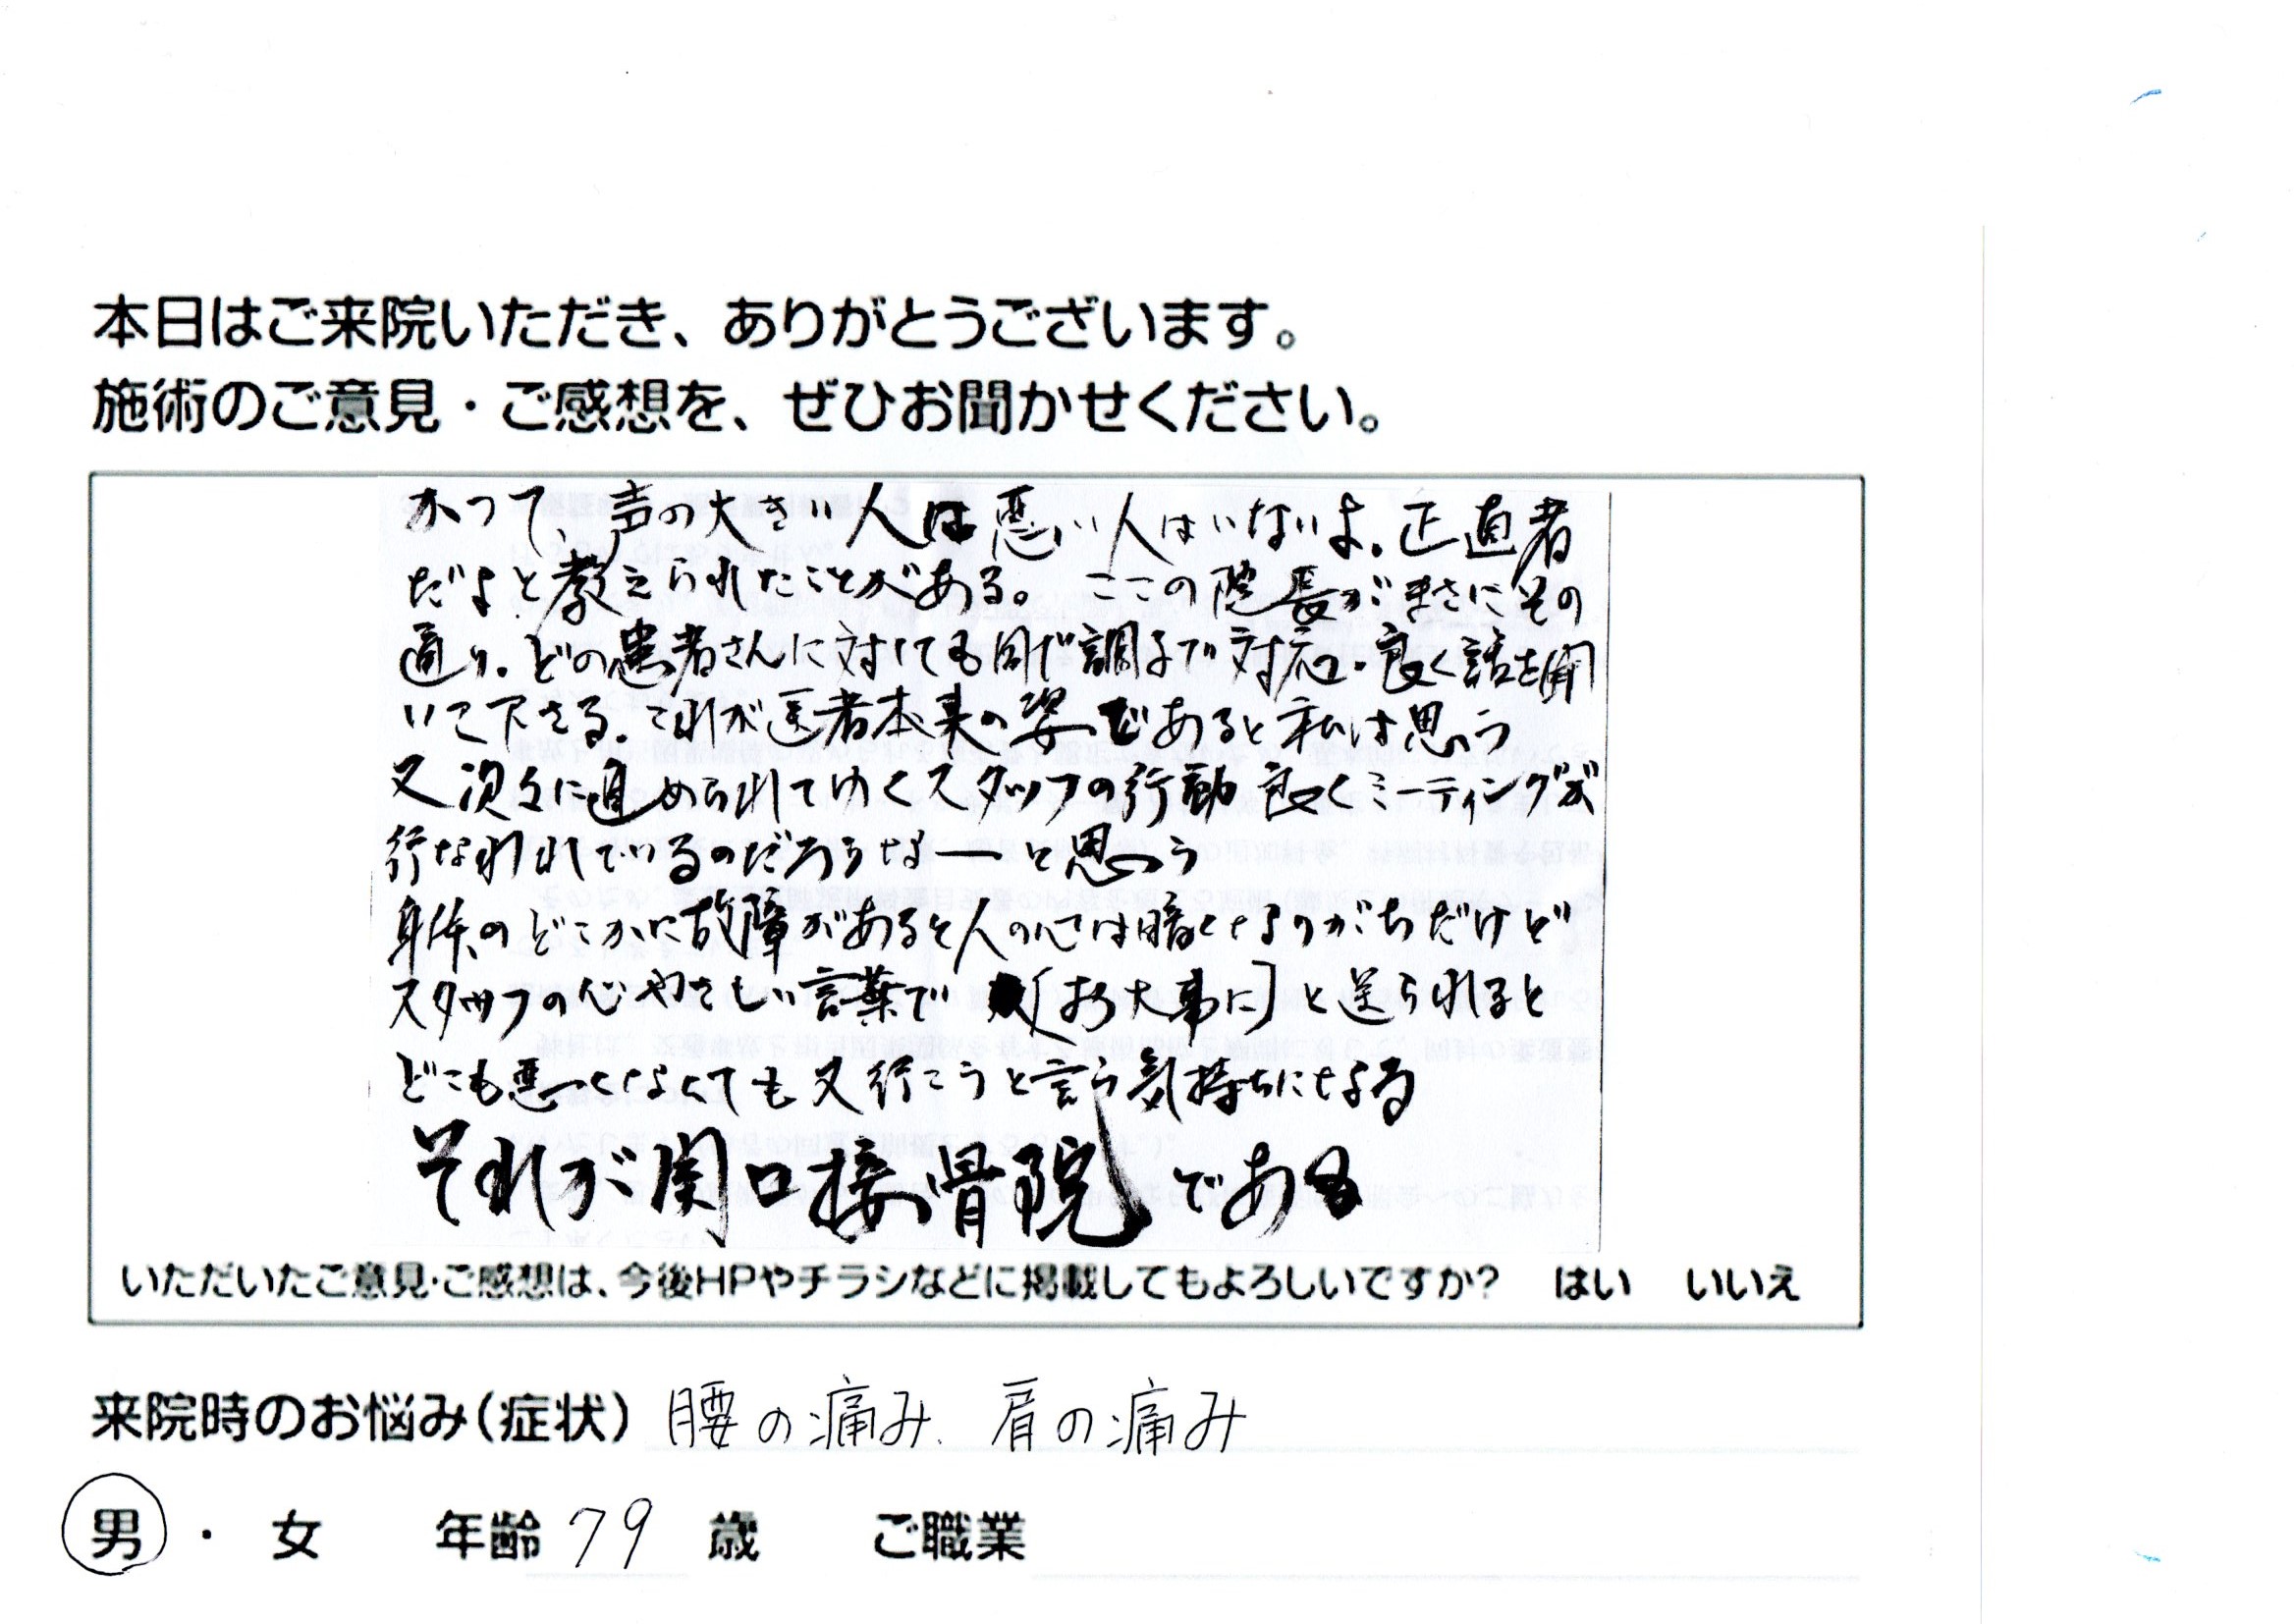 本日はご来院いただき、ありがとうございます。
施術のご意見・ご感想を、ぜひお聞かせください。
かつて、声の大きい人は悪い人はいないよ。正直者
だよと教えられたことがある。ここの院長がまさにその
通り。どの患者さんに対しても同じ調子で対応。良く話を聞
いて下さる。これが医者本来の姿であると私は思う
又次々に進められてゆくスタッフの行動良くミーティングが
行なわれているのだろうなーと思う
身体のどこかに故障があると人の心は暗くなりがちだけど
スタッフの心やさしい言葉で「お大事に」と送られると
どこも悪くなくても又行こうと言う気持ちになる
それが関口接骨院である
いただいたご意見・ご感想は、今後HPやチラシなどに掲載してもよろしいですか？ はい いいえ
来院時のお悩み(症状) 腰の痛み、肩の痛み
男・女 年齢 79 歳 ご職業